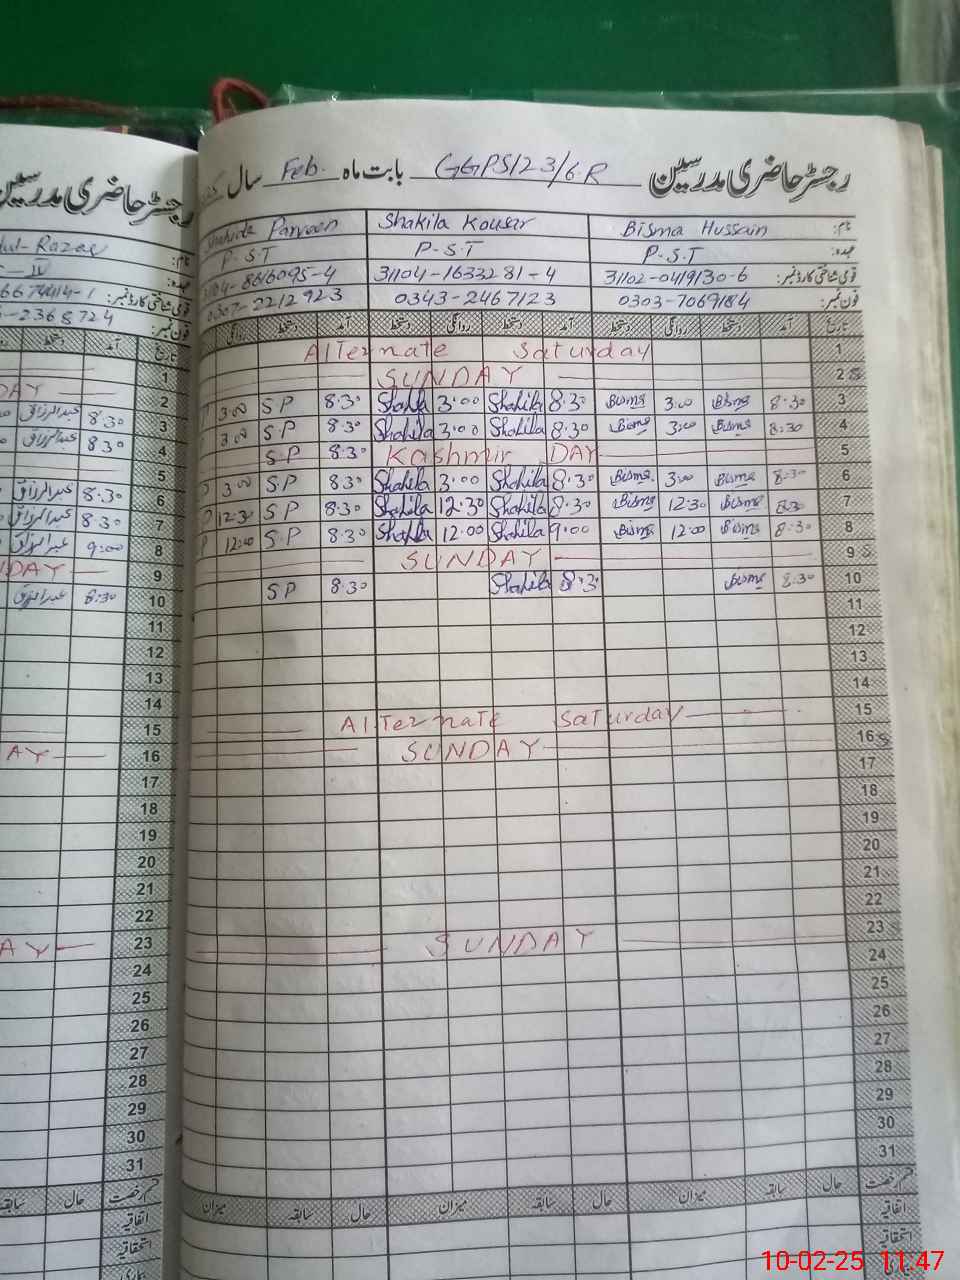 رجسٹر حاضری مدرسین GGPS123/6.R بابت ماہ Feb. سال
نام: Bisma Hussain Shakila Kousar Shahida Parveen
عہدہ: P.S.T P-S.T P.S.T
قومی شناختی کارڈ نمبر: 31102-0419130-6 31104-1633281-4 31104-8616095-4
فون نمبر: 0303-7069184 0343-2467123 0307-2212923
تاریخ آمد دستخط روانگی دستخط آمد دستخط روانگی دستخط آمد دستخط روانگی
1 Alternate Saturday
2 SUNDAY
3 8:30 Bisma 3:00 Bisma 8:30 Shakila 3:00 Shakila 8:30 S.P 3:00
4 8:30 Bisma 3:00 Bisma 8:30 Shakila 3:00 Shakila 8:30 S.P 3:00
5 Kashmir DAY 8:30 S.P
6 8:30 Bisma 3:00 Bisma 8:30 Shakila 3:00 Shakila 8:30 S.P 3:00
7 8:30 Bisma 12:30 Bisma 8:30 Shakila 12:30 Shakila 8:30 S.P 12:30
8 8:30 Bisma 12:00 Bisma 9:00 Shakila 12:00 Shakila 8:30 S.P 12:00
9 SUNDAY
10 8:30 Bisma 8:3 Shakila 8:30 S.P
11
12
13
14
15 Alternate Saturday
16 SUNDAY
17
18
19
20
21
22
23 SUNDAY
24
25
26
27
28
29
30
31
قسم رخصت حال سابقہ میزان حال سابقہ میزان حال سابقہ میزان
اتفاقیہ
استحقاقیہ
رجسٹر حاضری مدرسین
نام:
عہدہ:
قومی شناختی کارڈ نمبر:
فون نمبر:
تاریخ آمد دستخط
1
2
3 8:30 عبدالرزاق
4 8:30 عبدالرزاق
5
6 8:30 عبدالرزاق
7 8:30 عبدالرزاق
8 9:00 عبدالرزاق
9
10 8:30 عبدالرزاق
11
12
13
14
15
16
17
18
19
20
21
22
23
24
25
26
27
28
29
30
31
قسم رخصت حال سابقہ
اتفاقیہ
استحقاقیہ
10-02-25 11:47